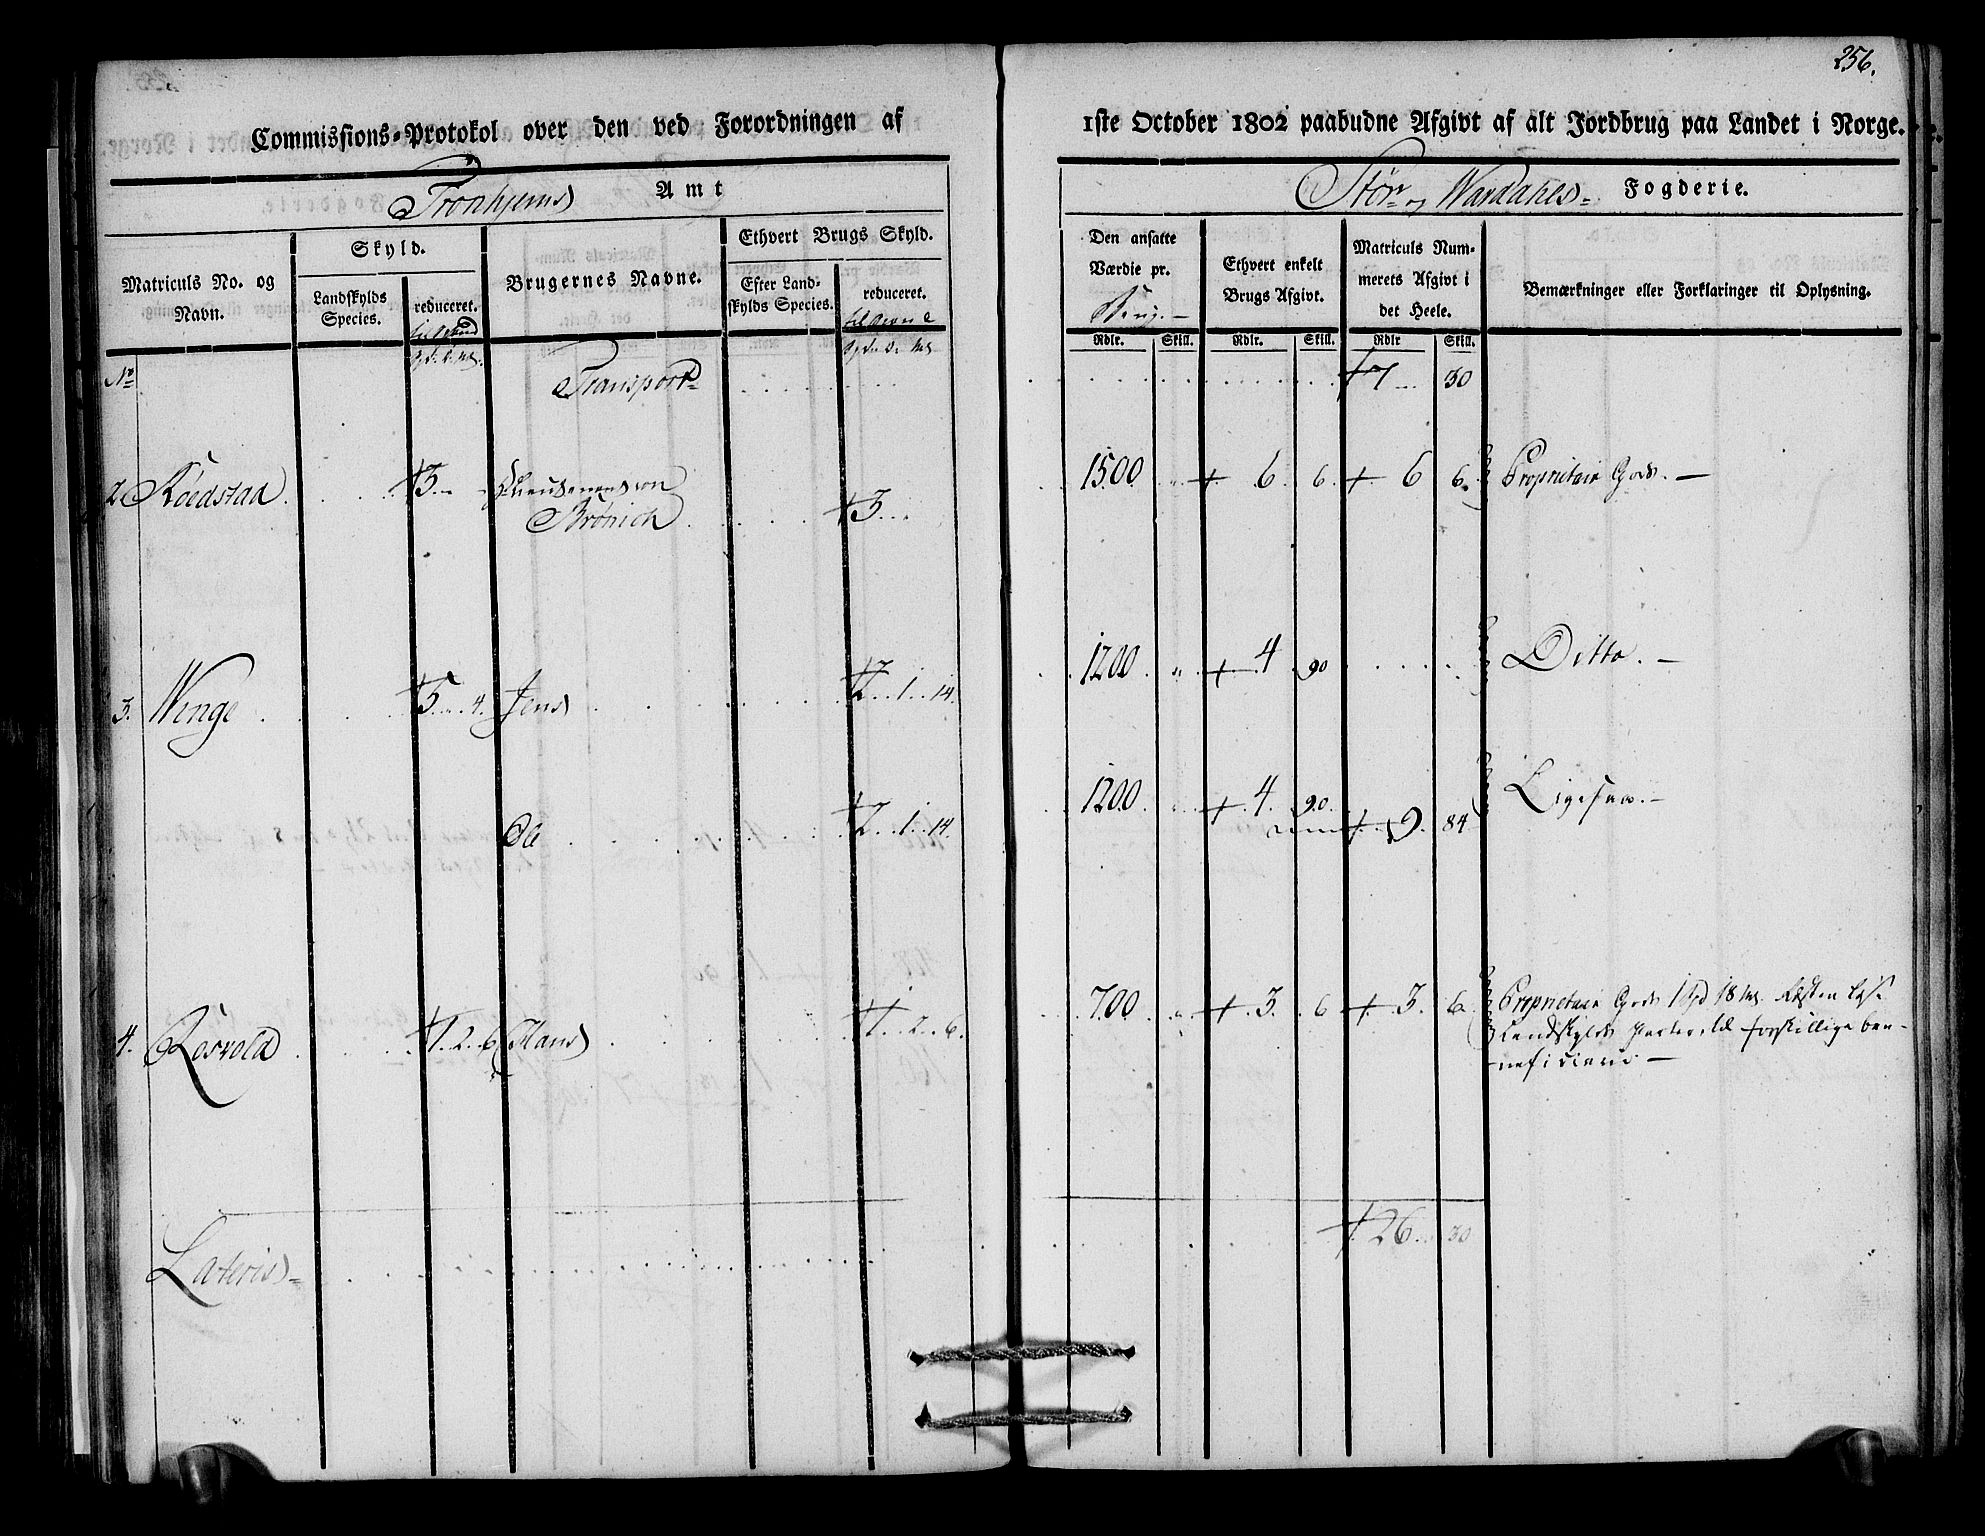 256.
Commissions-Protokol over den ved Forordningen af
1ste October 1802 paabudne Afgivt af alt Jordbrug paa Landet i Norge.
Tronhjems Amt
Stør- og Wærdahls- Fogderie.
Matriculs No. og Navn.
Skyld.
Landskylds Species.
reduceret.
Brugernes Navne.
Ethvert Brugs Skyld.
Efter Landskylds Species.
reduceret.
Den ansatte Værdie pr. Brug.-
Ethvert enkelt Brugs Afgivt.
Matriculs Nummerets Afgivt i det Heele.
Bemærkninger eller Forklaringer til Oplysning.
Rdlr. Skill. Rdlr. Skill. Rdlr Skill.
No
Transport- 17 30
2. Roedstad 3 3 1500 6 6 6 6 Proprietair Gods. —
Brønich
3. Winge 5 4. Jens 2..1..14. 1200 4 90 Ditto. —
Ole 2..1..14. 1200 4. 90. 9. 84 Ligesaa. —
4. Rosvold 1.2.6 Hans 1..2..6. 700 3. 6 3. 6. Proprietair Gods 1 18
forskillige ben-
neficiair. —
Lateris- 26. 30